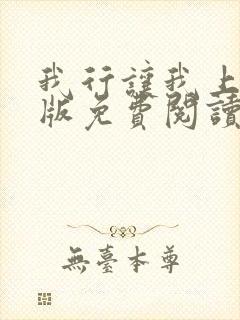 我行讓我上
版免費閱讀
無臺本尊